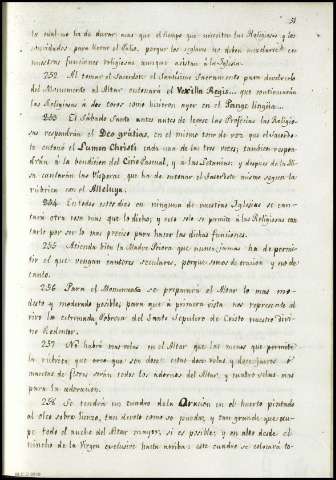 51
lo cual no ha de durar mas que el tiempo que necesiten las Religiosas y los
convidados para llevar el Palio, porque los seglares no deben mezclarse en
nuestras funciones religiosas aunque asistan à la Iglesia.
252 Al tomar el Sacerdote el Santísimo Sacramento para devolverlo
del Monumento al Altar entonará el Vexilla Regis... que continuarán
las Religiosas à dos coros como hicieron ayer en el Pange lingüa...
253 El Sábado Santo antes de leerse las Profecías las Religio-
sas responderán el Deo gratias, en el mismo tono de voz que el Sacerdo-
te entonó el Lumen Christi cada una de las tres veces; tambien respon-
derán à la bendicion del Cirio Pascual, y à las Letanías: y despues de la Mi-
sa cantarán las Vísperas que ha de entonar el Sacerdote mismo segun la
rúbrica con el Alleluya.
254 En todos estos dias en ninguna de nuestras Iglesias se can-
tará otra cosa mas que lo dicho; y esto solo se permite à las Religiosas can-
tarlo por ser lo mas preciso para hacer las dichas funciones.
255 Atienda bien la Madre Priora que nunca jamas ha de permi-
tir el que vengan cantores seculares, porque somos de oracion y no de
canto.
256 Para el Monumento se preparará el Altar lo mas mo-
desto y moderado posible, para que à primera vista nos represente al
vivo la estremada Pobreza del Santo Sepulcro de Cristo nuestro divi-
no Redentor.
257 No habrá mas velas en el Altar que las menos que permite
la rúbrica que creo que son doce: estas doce velas y doce jarros ó
macetas de flores serán todos los adornos del Altar, y cuatro velas mas
para la adoracion.
258 Se tendrá un cuadro de la Oración en el huerto pintado
al oleo sobre lienzo, tan devoto como se pueda, y tan grande que ocu-
pe todo el ancho del Altar mayor, si es posible; y en alto desde el
nincho de la Virgen exclusive hasta arriba: este cuadro se colocará to-